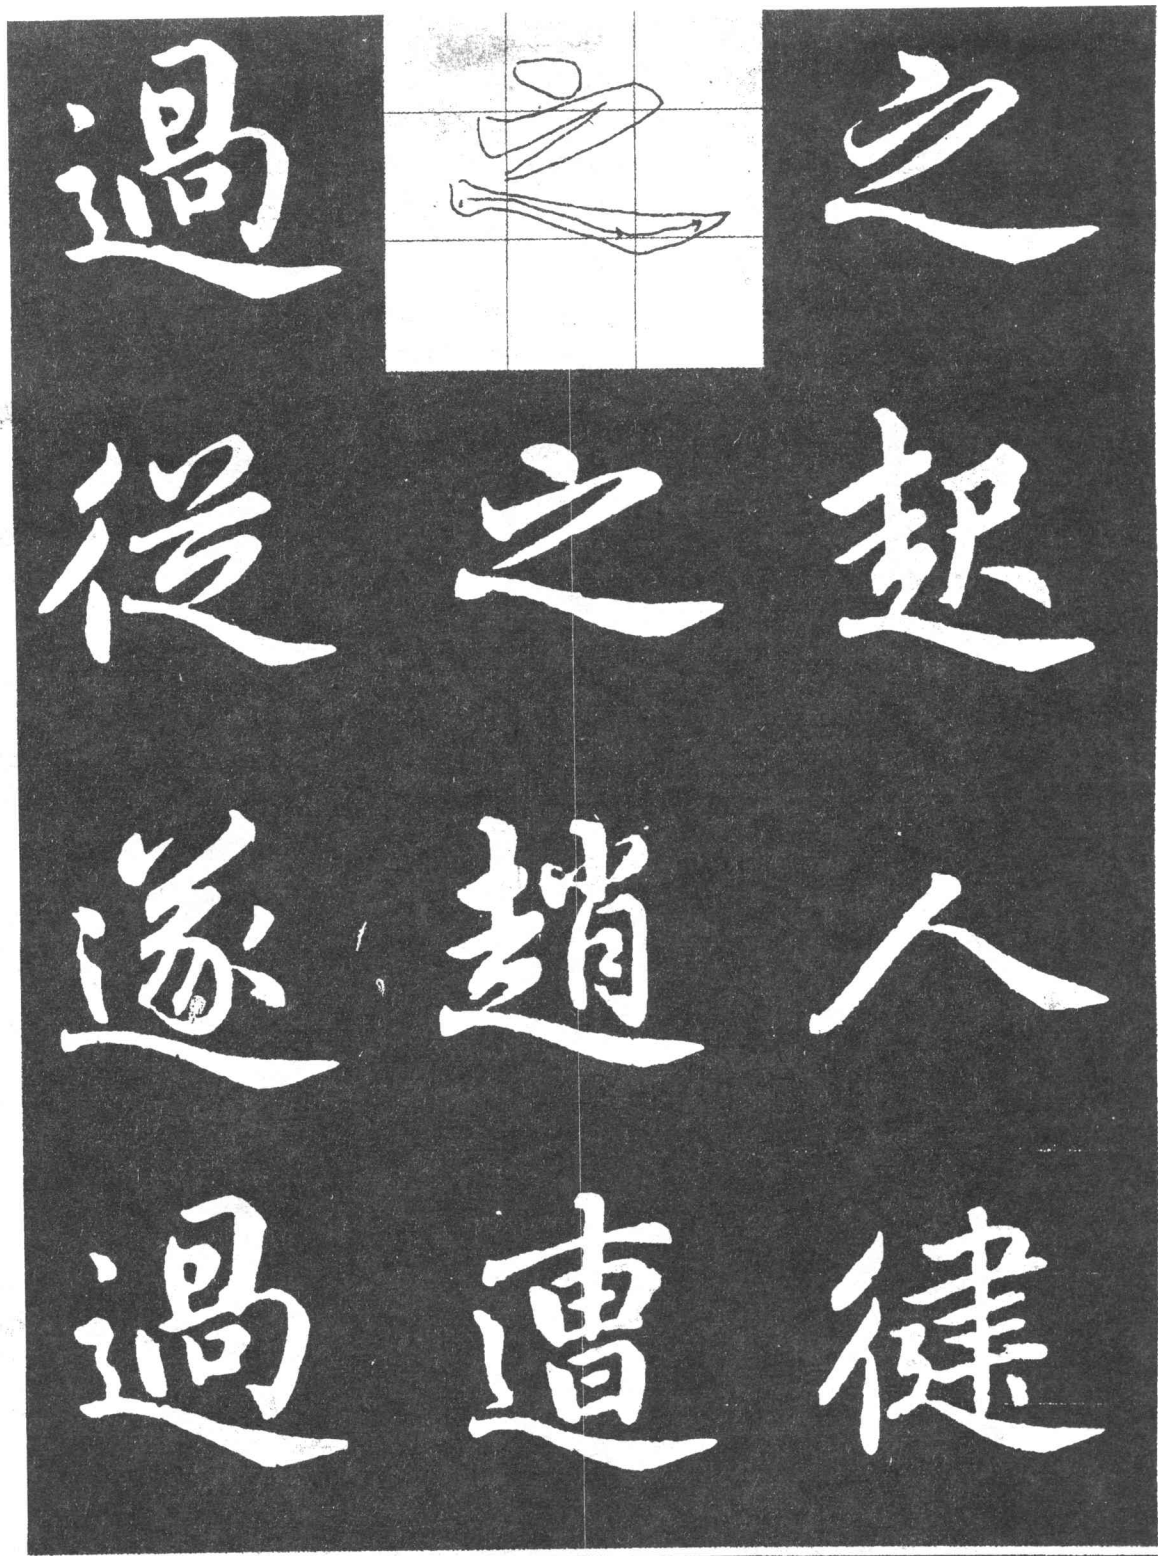 之起人健
之之趙遭
過從遂過